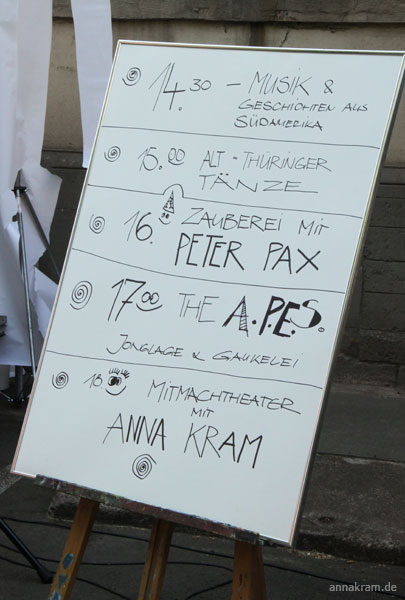 14.30 – MUSIK &
GESCHICHTEN AUS
SÜDAMERIKA
15.00 ALT-THÜRINGER
TÄNZE
16. ZAUBEREI MIT
PETER PAX
17.00 THE A.P.E.S.
JONGLAGE & GAUKELEI
18. MITMACHTHEATER
MIT
ANNA KRAM
annakram.de